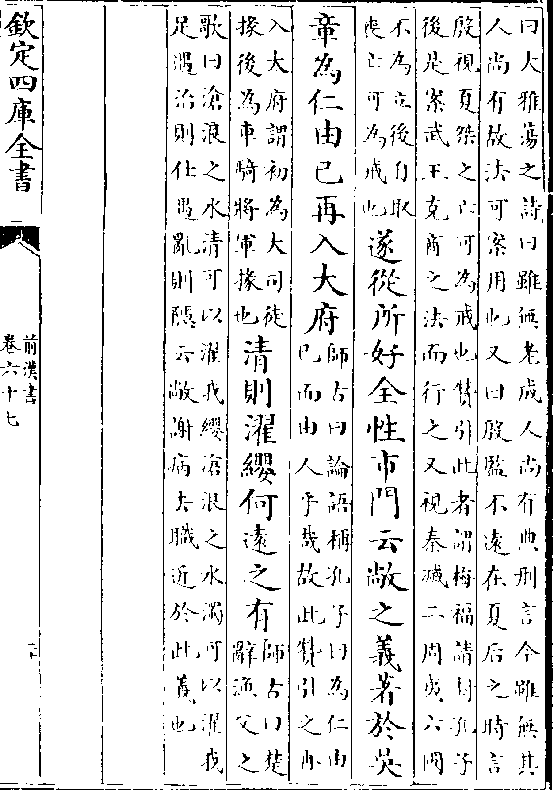 曰大雅蕩之詩曰雖無老成人尚有典刑言今雖無其
人尚有故法可案用也又曰殷監不遠在夏后之時言
殷視夏桀之亡可為戒也贊引此者謂梅福請封孔子
後是案武王克商之法而行之又視秦滅二周夷六國
不為立後自取
喪亡可為戒也
遂從所好全性市門云敞之義著於吳
章為仁由已再入大府
師古曰論語稱孔子曰為仁由
已而由人乎哉故此贊引之再
入大府謂初為大司徒
掾後為車騎將軍掾也
清則濯纓何遠之有
師古曰楚
辭漁父之
歌曰滄浪之水清可以濯我纓滄浪之水濁可以濯我
足遇治則仕遇亂則隱云敞謝病去職近於此義也
欽定四庫全書
前漢書
卷六十七